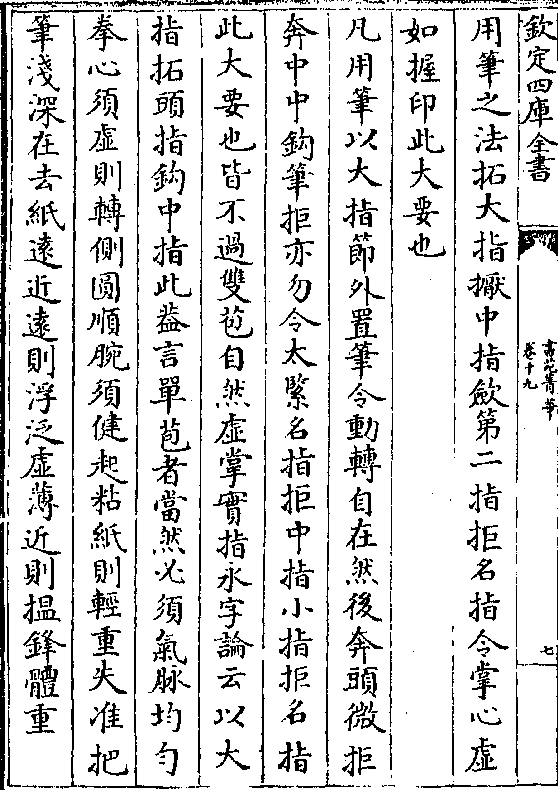 欽定四庫全書
書苑菁華
卷十九
七
用筆之法拓大指擫中指斂第二指拒名指令掌心虛
如握印此大要也
凡用筆以大指節外置筆令動轉自在然後奔頭微拒
奔中中鈎筆拒亦勿令太緊名指拒中指小指拒名指
此大要也皆不過雙苞自然虛掌實指永字論云以大
指拓頭指鈎中指此葢言單苞者當然必須氣脉均勻
拳心須虛則轉側圓順腕須健起粘紙則輕重失准把
筆淺深在去紙遠近遠則浮泛虛薄近則搵鋒體重